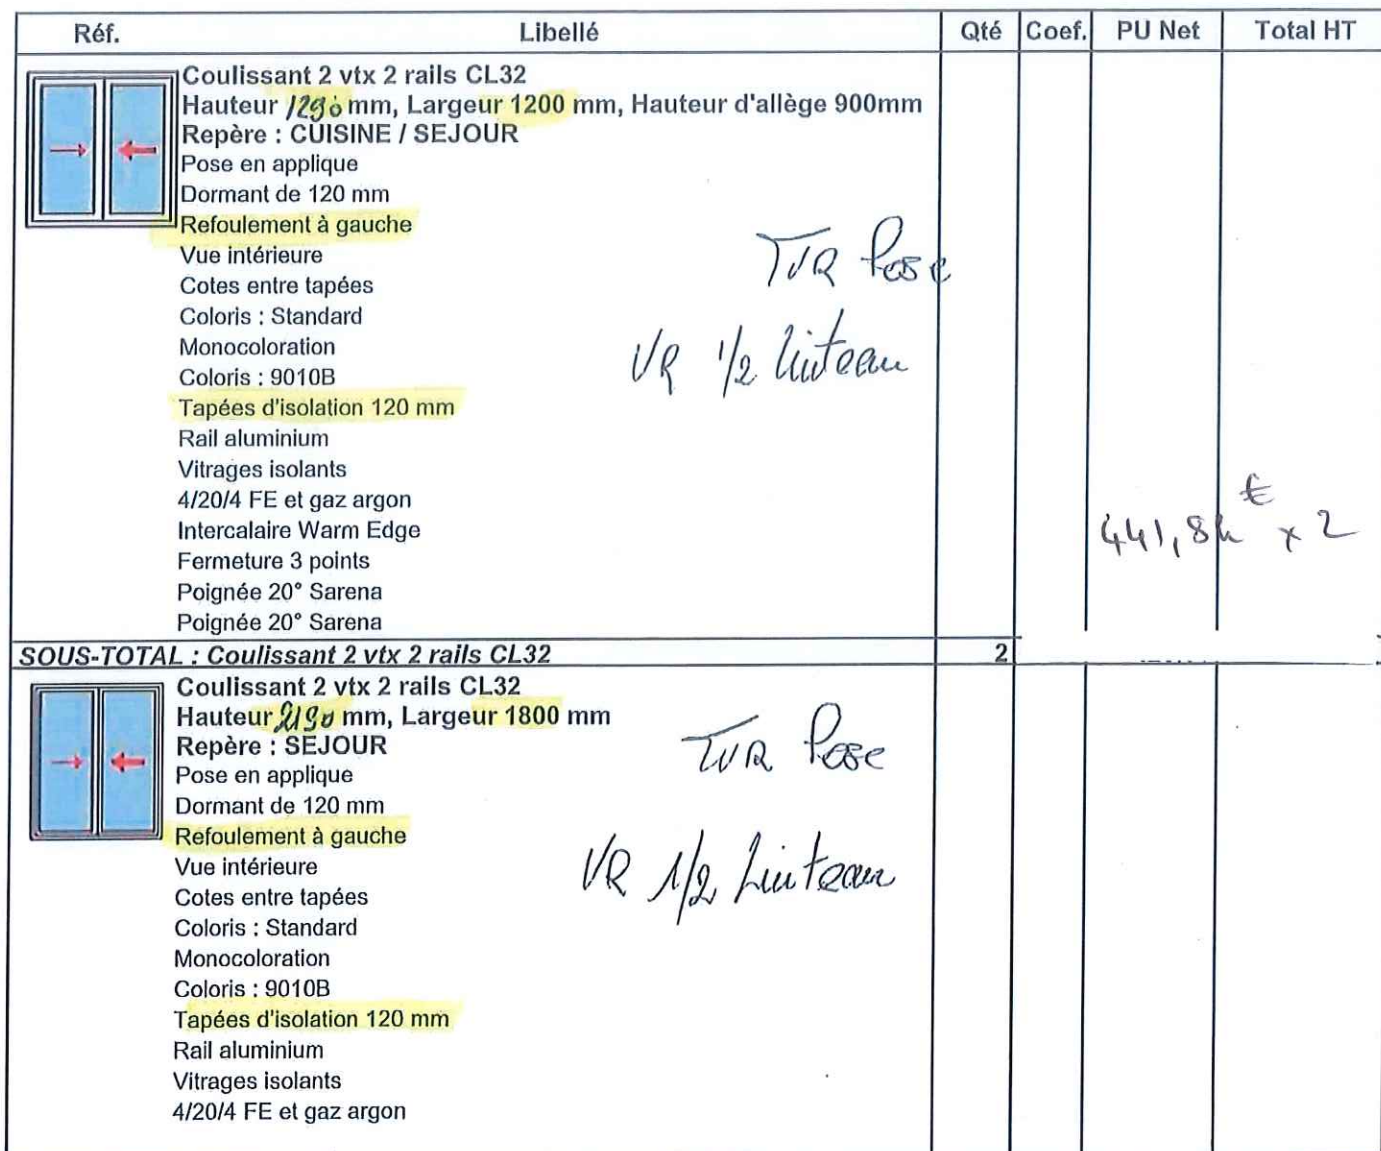 Réf. Libellé Qté Coef. PU Net Total HT
Coulissant 2 vtx 2 rails CL32
Hauteur 1290 mm, Largeur 1200 mm, Hauteur d'allège 900mm
Repère : CUISINE / SEJOUR
Pose en applique
Dormant de 120 mm
Refoulement à gauche
Vue intérieure
TVR Pose
Cotes entre tapées
Coloris : Standard
Monocoloration
VR 1/2 linteau
Coloris : 9010B
Tapées d'isolation 120 mm
Rail aluminium
Vitrages isolants
4/20/4 FE et gaz argon
Intercalaire Warm Edge
441,84 € x 2
Fermeture 3 points
Poignée 20° Sarena
Poignée 20° Sarena
SOUS-TOTAL : Coulissant 2 vtx 2 rails CL32 2
Coulissant 2 vtx 2 rails CL32
Hauteur 2190 mm, Largeur 1800 mm
Repère : SEJOUR
TVR Pose
Pose en applique
Dormant de 120 mm
Refoulement à gauche
Vue intérieure
VR 1/2 Linteau
Cotes entre tapées
Coloris : Standard
Monocoloration
Coloris : 9010B
Tapées d'isolation 120 mm
Rail aluminium
Vitrages isolants
4/20/4 FE et gaz argon